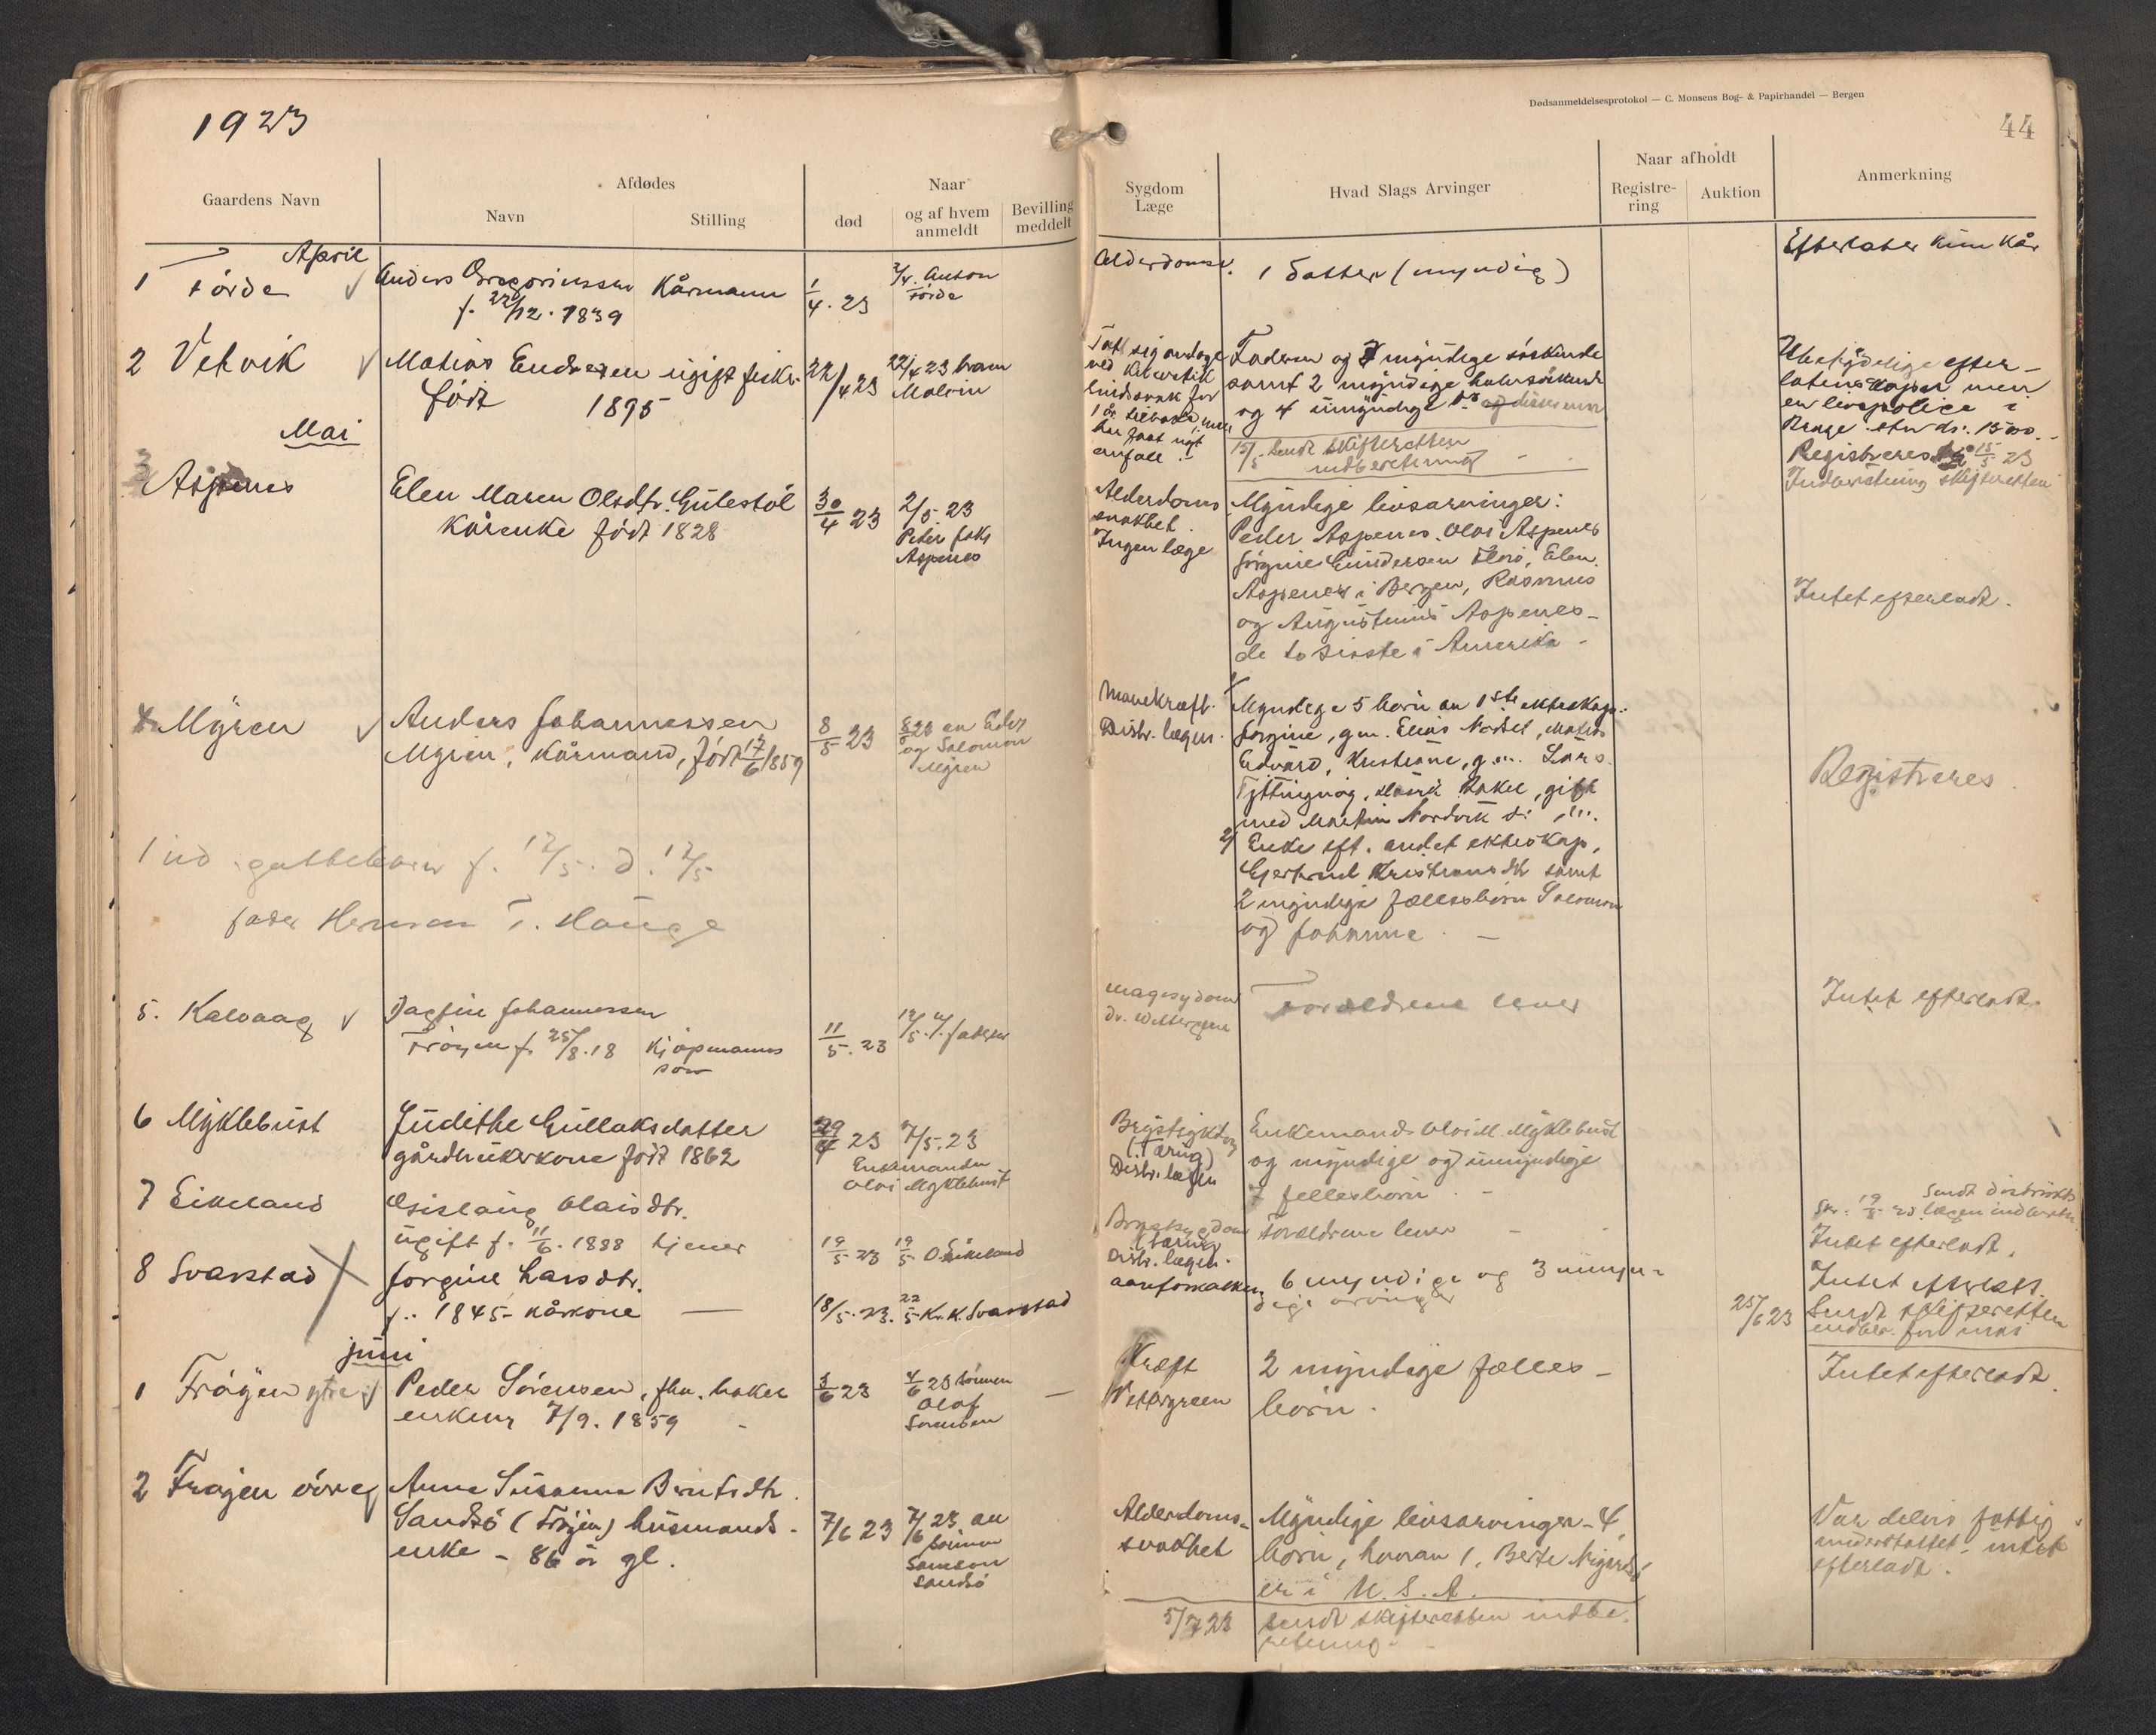 1923
Dødsanmeldelsesprotokol — C. Monsens Bog- & Papirhandel — Bergen
44
Gaardens Navn
Afdødes
Navn
Stilling
død
Naar
og af hvem
anmeldt
Bevilling
meddelt
Sygdom
Læge
Hvad Slags Arvinger
Naar afholdt
Registre-
ring
Auktion
Anmerkning
April
1 Førde
Anders Gregoriussen Kårmann
f. 22/12. 1839
1/4. 23
Anton
Førde
Alderdomssv.
1 Datter (myndig)
Efterlater kun kår
2 Vetvik
Matias Endresen ugift fisker
født 1895
22/4 23
22/4 23 bram
Malvin
Faderen og 7 myndige søskende
samt 2 myndige halvsøskende
og 4 umyndige
15/5 Sendt skifteretten
indberetning
Ubetydelige efter-
latenskaper men
en livspolice i
Registreres 15/5 23
Indberetning skifteretten
Mai
3 Aspenes
Elen Maren Olsdtr. Gulestøl
Kårenke født 1828
30/4 23
2/5. 23
Peder Jaks
Aspenes
Alderdoms
svakhet.
Ingen læge
Myndige livsarvinger:
Peder Aspenes. Olai Aspenes
Jørgine Gundersen Florø, Elen.
Aspenes i Bergen, Rasmus
og Augustinus Aspenes-
de to siste i Amerika -
Intet efterladt.
4 Myren
Anders Johannessen
Myren, Kårmand, født 17/6 1859
8/5 23
8/5 23 av Edv
og Salomon
Myren
Mavekræft.
Distr. lægen.
Myndige 5 børn av 1ste ekteskap:
Jørgine, gm. Elias Nødset, Matias
Edvard, Kristiane, gm. Lars
med Martin Nordvik
2/ Enke eft. andet ekteskap,
Gjertrud Kristiansdtr samt
2 myndige fællesbørn Salomon
og Johanne. —
Registreres
1 ud guttebarn f. 12/5. d. 12/5
fader Herman T. Hauge
5. Kalvaag
Dagfin Johannessen
Frøyen f. 25/8.18 Kjøpmanns
søn
11/5. 23
12/5. v/ faderen
Magesygdom
Forældrene lever
Intet efterladt.
6 Myklebust
Judithe Gullaksdatter
gårdbrukerkone født 1862
29/4 23
7/5. 23
Enkemanden
Olai Myklebust
Brystsykdom
(Tæring)
Distr. lægen
Enkemand Olai M. Myklebust
og myndige og umyndige
7 fellesbørn. -
7 Eikeland
Aslaug Olaisdtr.
ugift f. 11/6. 1888 tjener
19/5 23
19/5 O. Eikeland
Brystsygdom
(Tæring)
Distr. lægen.
Forældrene lever -
Sendt distrikts
lægen indberetn
Intet efterladt.
8 Svarstad
Jorgine Larsdtr.
f. 1845- Kårkone —
18/5. 23.
22/5 Kr. K. Svarstad
aareforkalkn.
6 myndige og 3 umyn-
dige arvinger
25/6 23
Intet efterladt.
Sendt skifteretten
indber. for mai
juni
1 Frøyen ytre
Peder Sørensen, fhv. baker
enkem 7/9. 1859
3/6 23
4/6 23 sønnen
Olaf
Sørensen
—
Kræft
Vettergreen
2 myndige fælles-
børn.
Intet efterladt.
2 Frøyen øvre
Anne Susanne Berntsdtr.
Sandsø (Frøyen) husmands-
enke - 86 år gl.
7/6 23
7/6 23 av
sønnen
Samson
Sandsø
Alderdoms-
svakhet
Myndige livsarvinger - 4
børn, hvorav 1, Berte
er i U. S. A.
5/7 23
Sendt skifteretten indbe-
retning.
Var delvis fattig
understøttet - intet
efterladt.